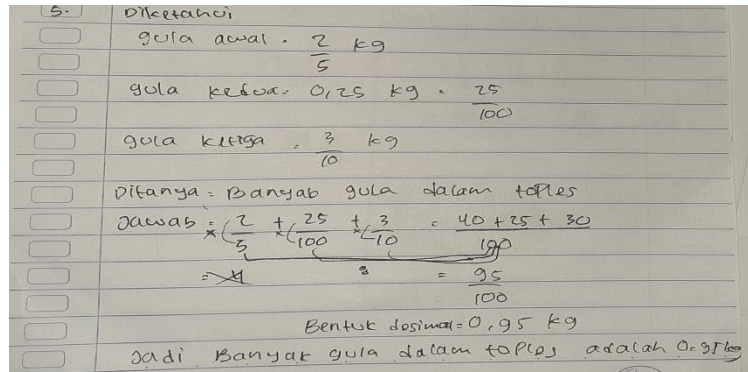 5. Diketahui
gula awal = 2/5 kg
gula kedua = 0,25 kg = 25/100
gula ketiga = 3/10 kg
Ditanya = Banyak gula dalam toples
Jawab = 2/5 + 25/100 + 3/10 = 40 + 25 + 30/100
= 95/100
Bentuk desimal = 0,95 kg
Jadi Banyak gula dalam toples adalah 0,95 kg